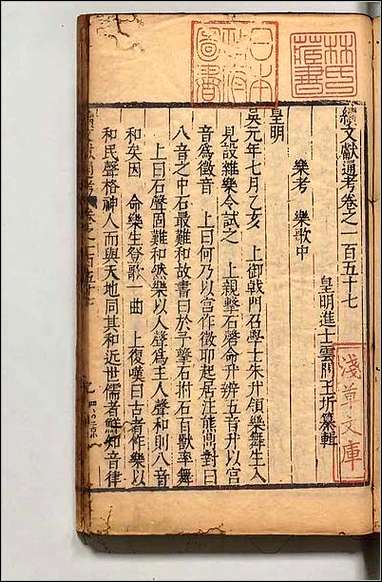 續文獻通考卷之一百五十七
皇明進士雲間王圻纂輯
樂考 樂歌中
皇明
吳元年七月乙亥 上御戟門召學士朱升領樂舞生入
見設雅樂令試之 上親擊石磬命升辨五音升以宮
音爲徵音 上曰何乃以宮作徵耶起居注熊鼎對曰
八音之中石最難和故書曰於予擊石拊石百獸率舞
上曰石聲固難和然樂以人聲爲主人聲和則八音
和矣因 命樂生登歌一曲 上復嘆曰古者作樂以
和民聲格神人而與天地同其和近世儒者鮮知音律
林氏藏書
淺草文庫